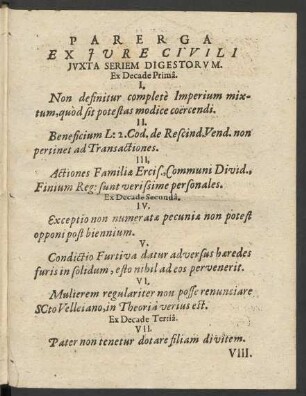 PARERGA
EX JURE CIVILI
JVXTA SERIEM DIGESTORVM.
Ex Decade Primâ.
I.
Non definitur completè Imperium mix-
tum, quòd sit potestas modice coërcendi.
II.
Beneficium L: 2. Cod. de Rescind. Vend. non
pertinet ad Transactiones.
III.
Actiones Familiæ Ercis., Communi Divid.,
Finium Reg: sunt verissime personales.
Ex Decade Secundâ.
IV.
Exceptio non numeratæ pecuniæ non potest
opponi post biennium.
V.
Condictio Furtiva datur adversus hæredes
furis in solidum, esto nihil ad eos pervenerit.
VI.
Mulierem regulariter non posse renunciare
SCto Velleiano, in Theoriâ verius est.
Ex Decade Tertiâ.
VII.
Pater non tenetur dotare filiam divitem.
VIII.